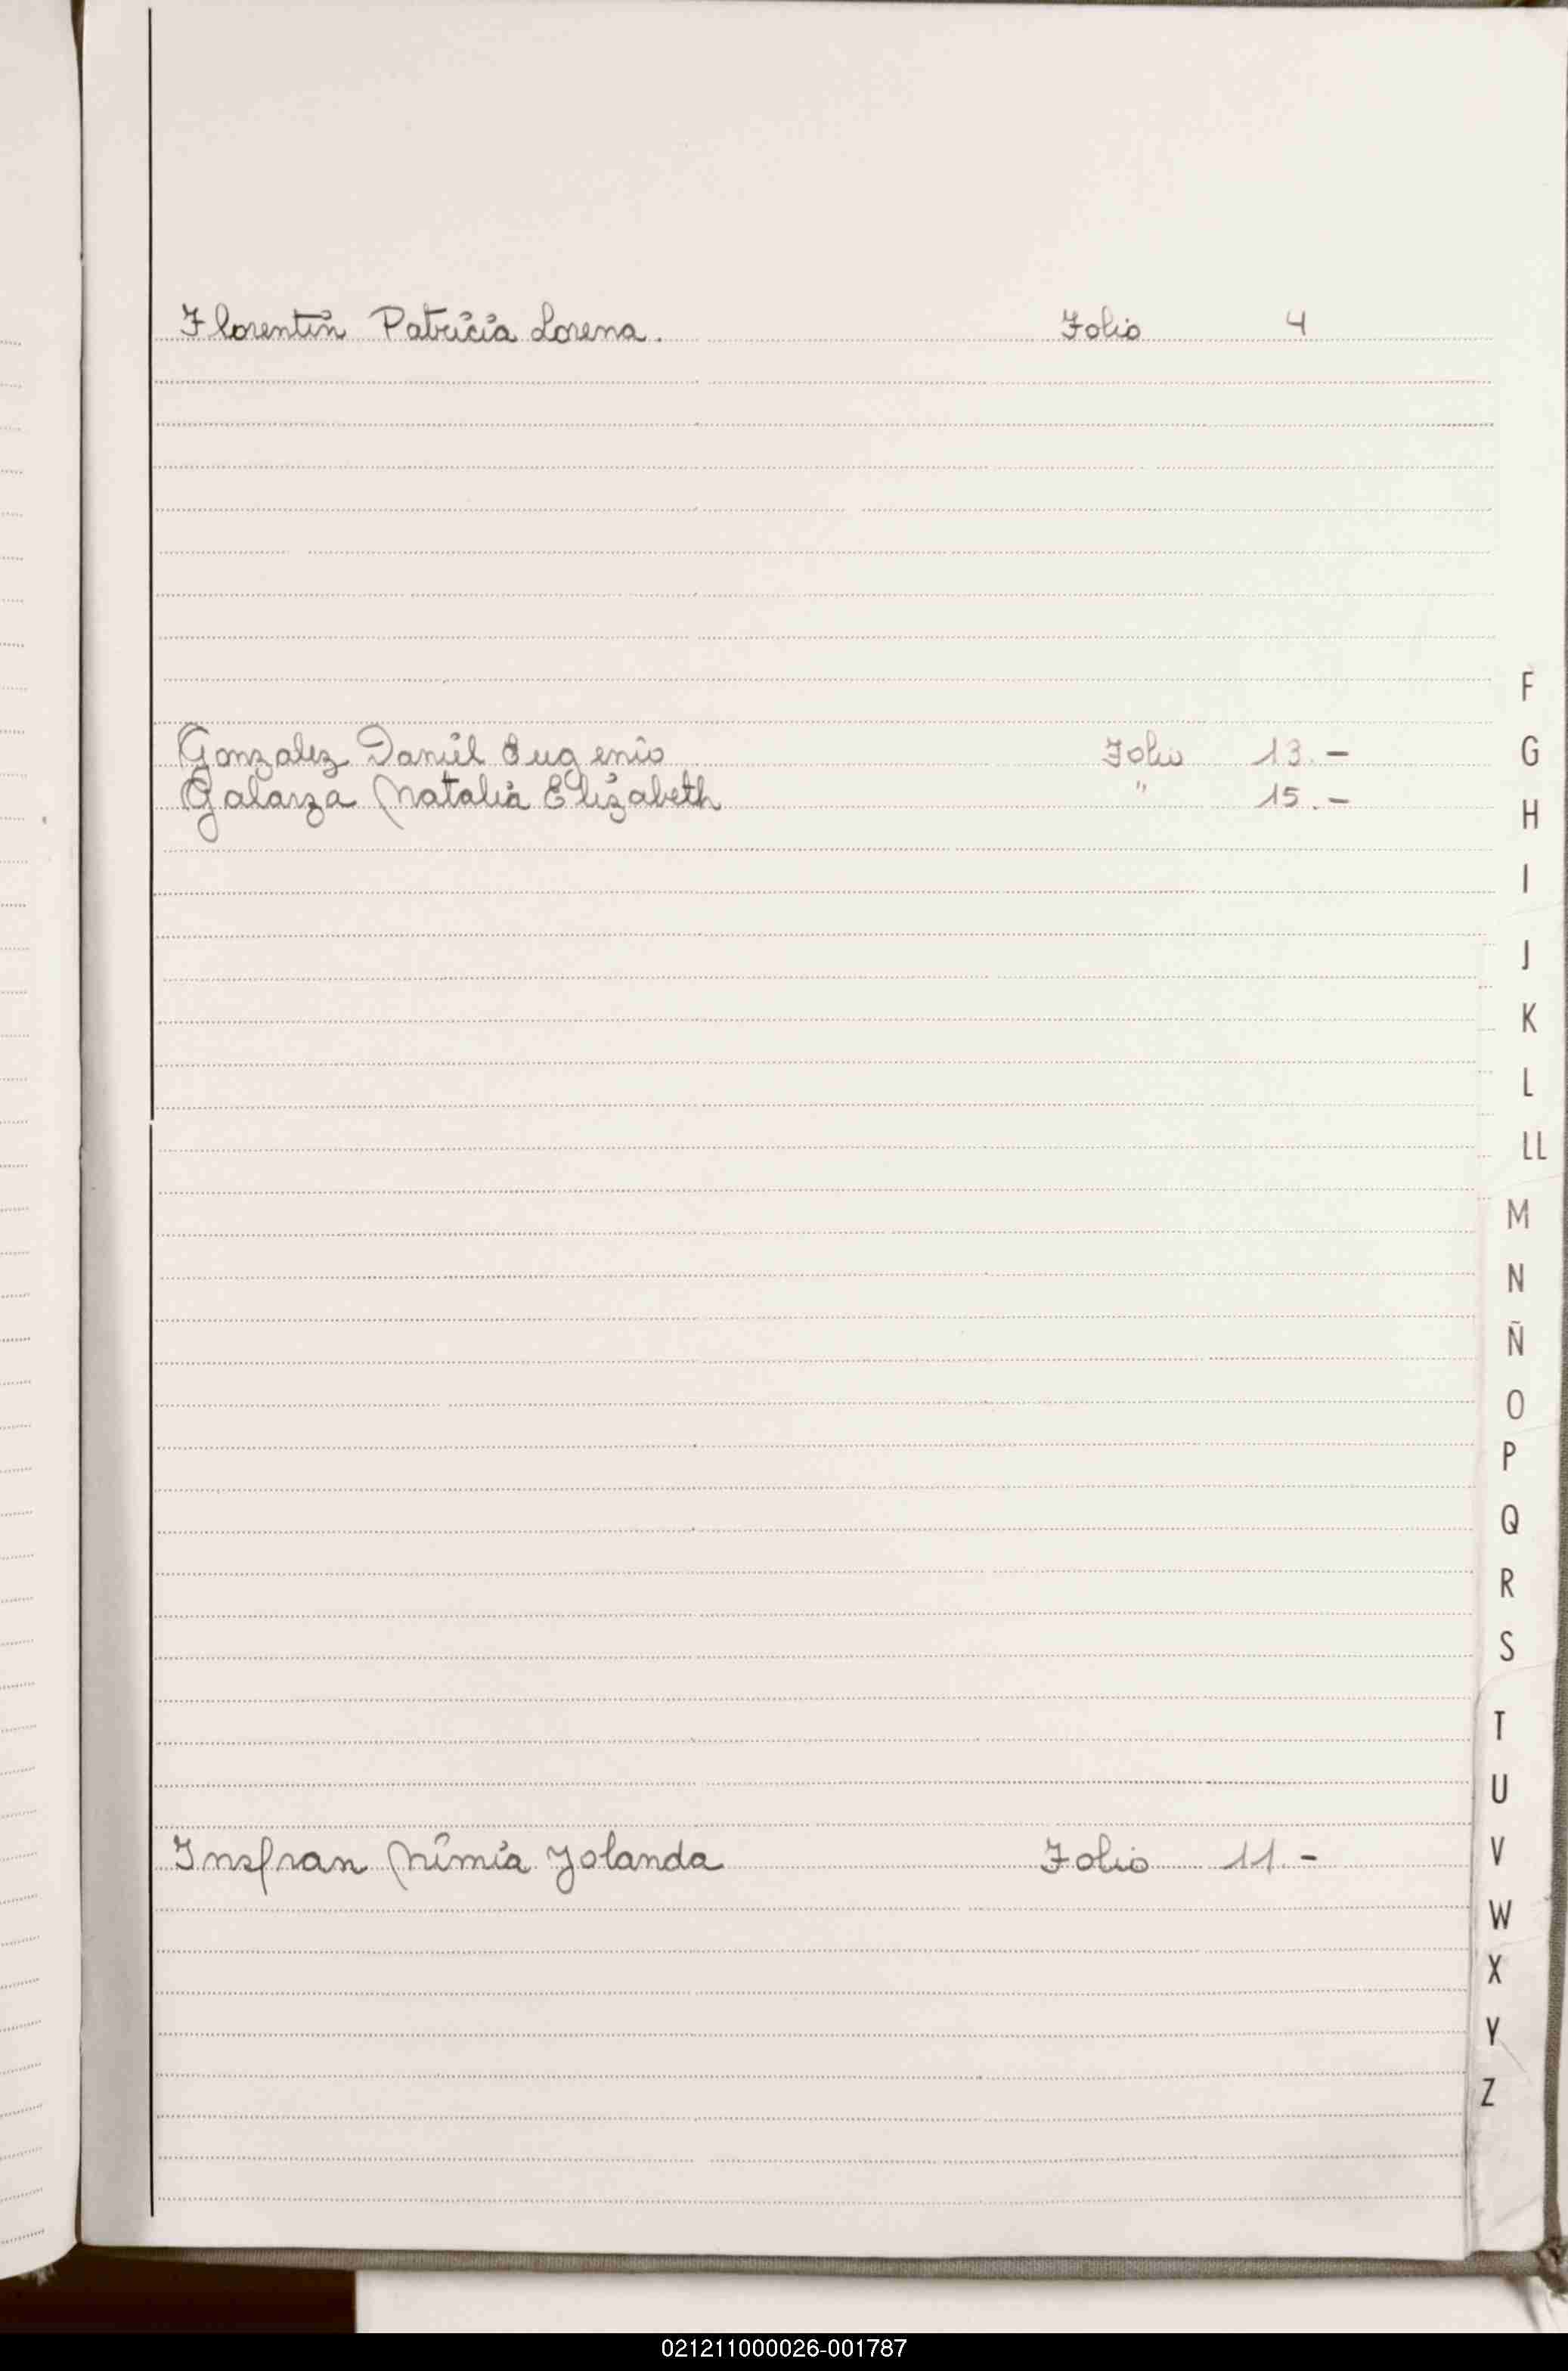 Florentin Patricia Lorena. Folio 4
F
Gonzalez Daniel Eugenio Folio 13.-
G
Galarza Natalia Elizabeth " 15.-
H
I
J
K
L
LL
M
N
Ñ
O
P
Q
R
S
T
U
Insfran Nimia Yolanda Folio 11.-
V
W
X
Y
Z
021211000026-001787